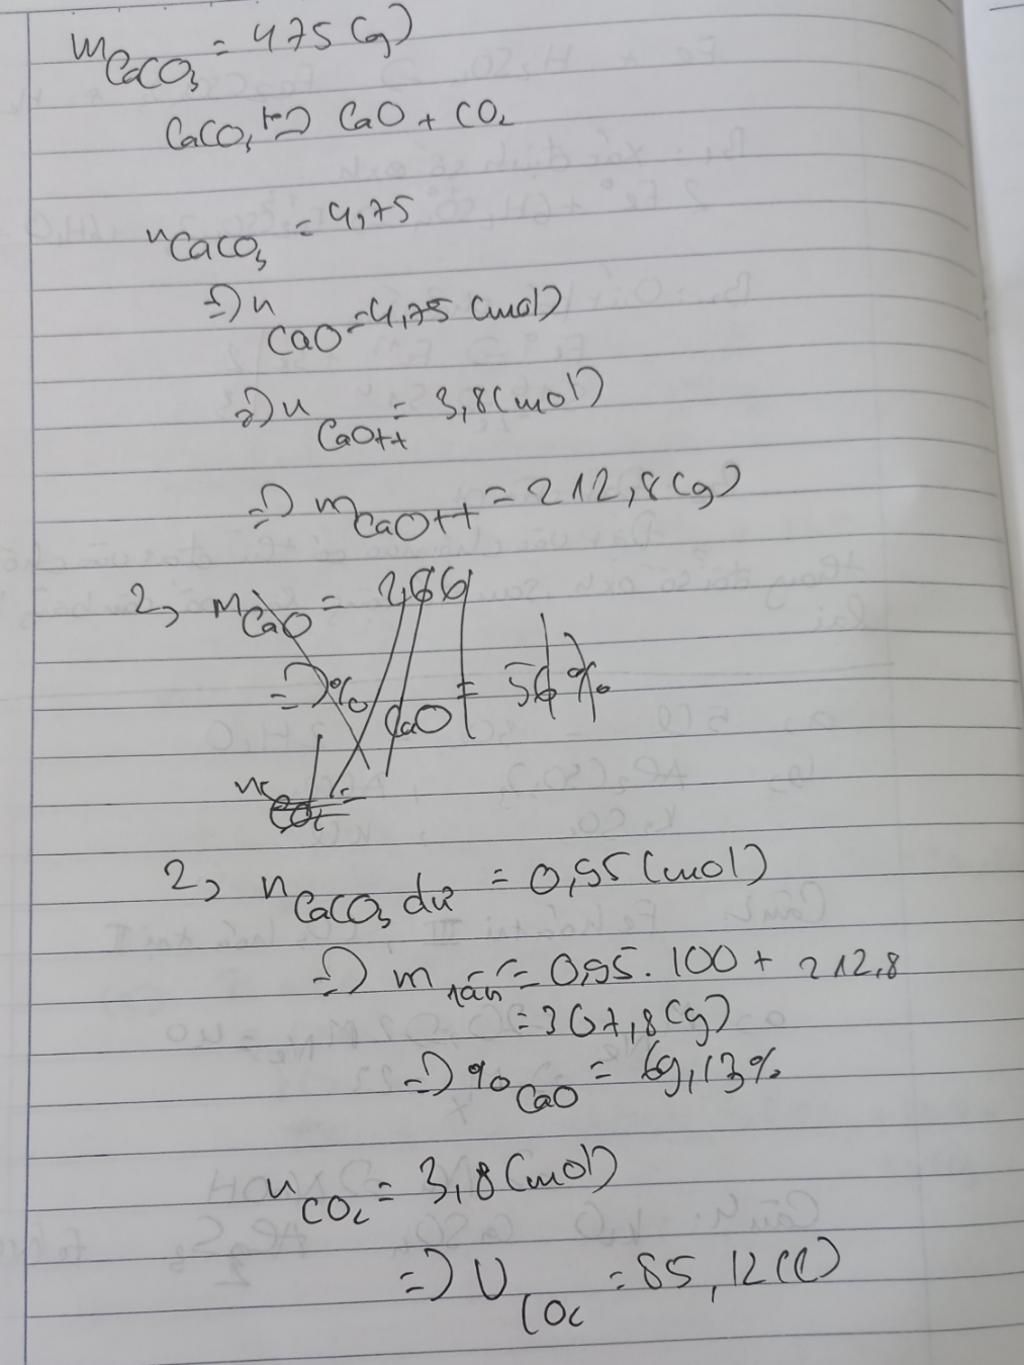 mCaCO3 = 475 (g)
CaCO3 t°=> CaO + CO2
nCaCO3 = 4,75
=> nCaO = 4,75 (mol)
=> nCaOtt = 3,8 (mol)
=> mCaOtt = 212,8 (g)
2, mCaO = 266
=> % CaO = 56%
nCO2 =
2, nCaCO3 dư = 0,95 (mol)
=> m rắn = 0,95.100 + 212,8
= 307,8 (g)
=> %CaO = 69,13%
nCO2 = 3,8 (mol)
=> VCO2 = 85,12 (l)